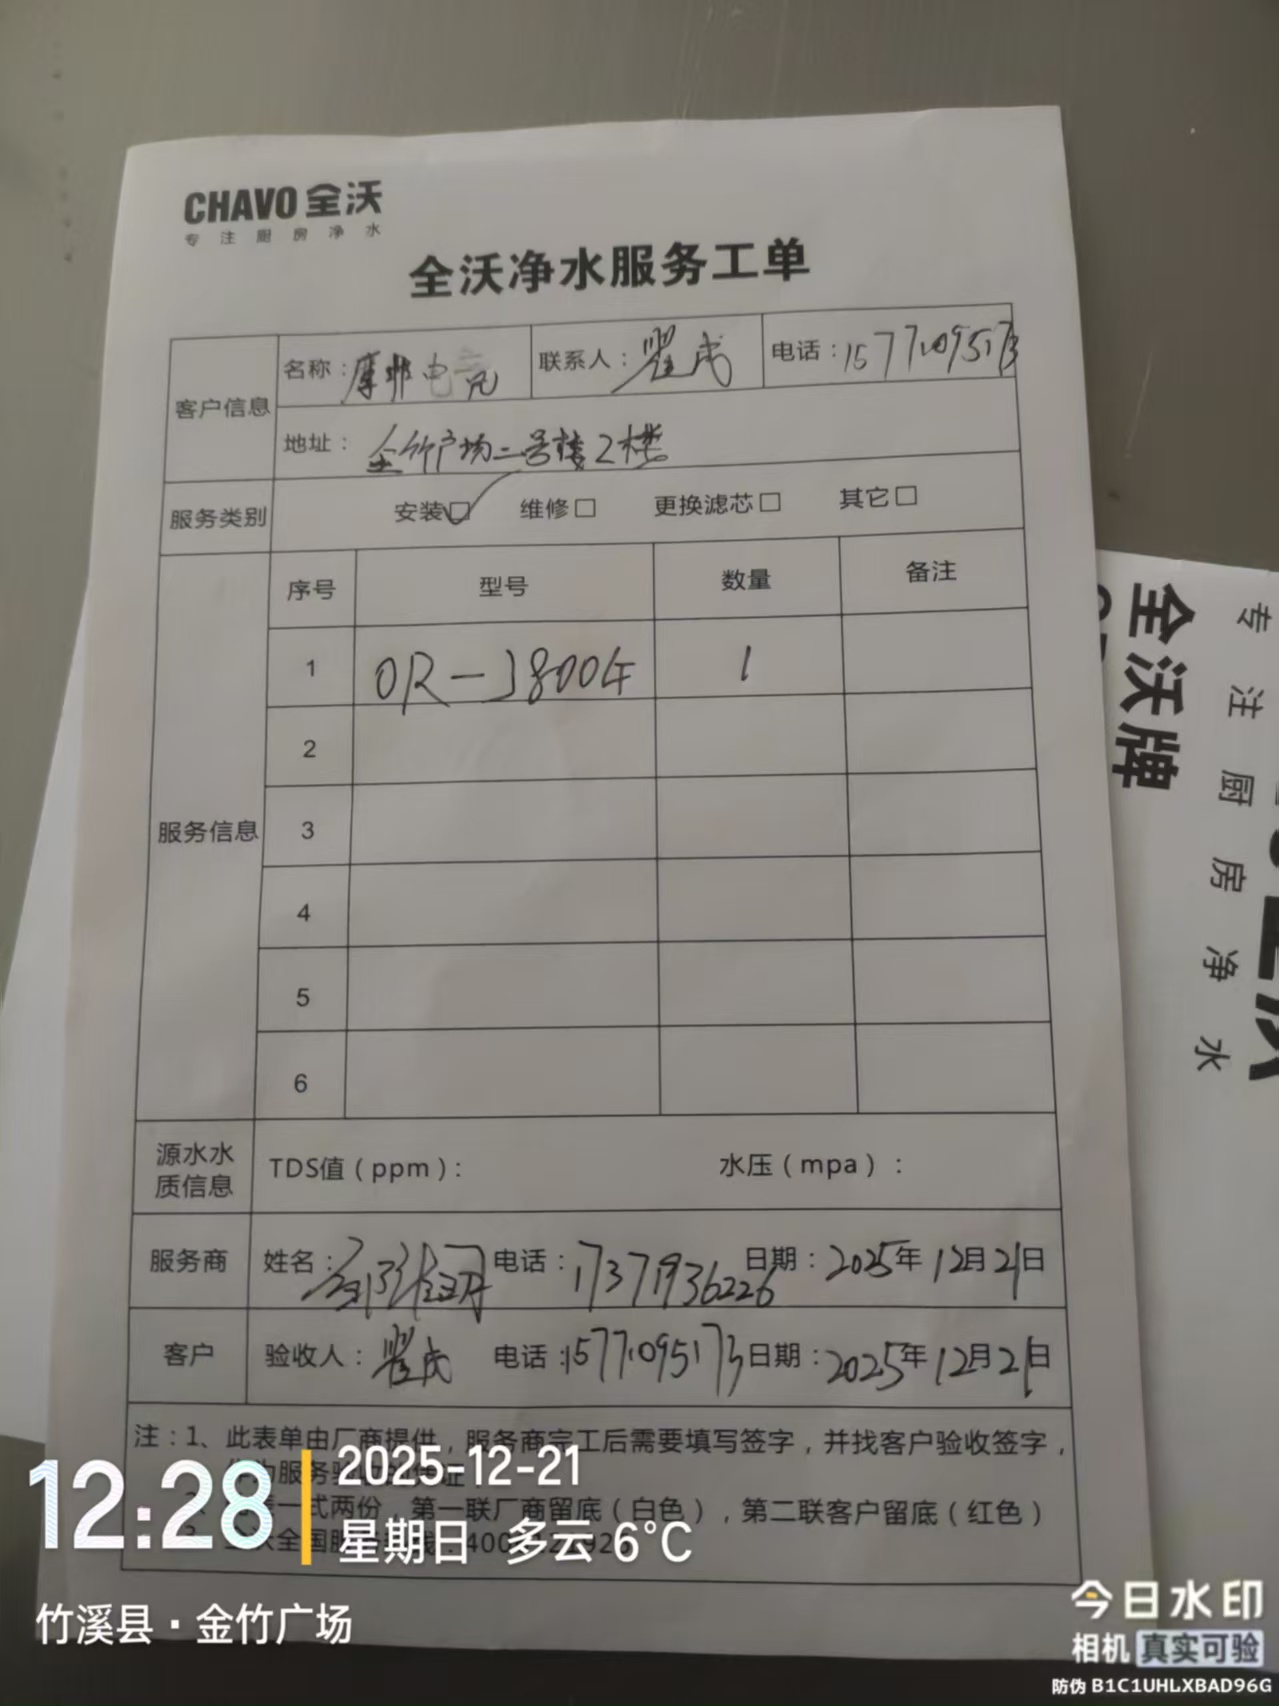 CHAVO 全沃
专注厨房净水
全沃净水服务工单
客户信息 名称：摩 联系人：瞿成 电话：15771095173
地址：金竹广场二号楼2楼
服务类别 安装☑ 维修□ 更换滤芯□ 其它□
服务信息 序号 型号 数量 备注
1 OR-J8004 1
2
3
4
5
6
源水水质信息 TDS值（ppm）： 水压（mpa）：
服务商 姓名： 电话：17371936226 日期：2025年12月21日
客户 验收人：瞿成 电话：15771095173 日期：2025年12月21日
注：1、此表单由厂商提供，服务商完工后需要填写签字，并找客户验收签字，
作为服务验收的凭证
一式两份，第一联厂商留底（白色），第二联客户留底（红色）
全国服
全沃牌
专注厨房净水
12:28
2025-12-21
星期日 多云 6°C
竹溪县·金竹广场
今日水印
相机 真实可验
防伪 B1C1UHLXBAD96G